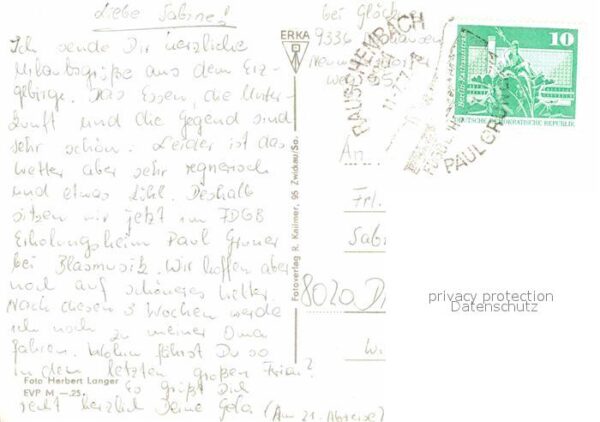 Liebe Sabine!
Ich sende Dir herzliche
Urlaubsgrüße aus dem Erz-
gebirge. Das Essen, die Unter-
kunft und die Gegend sind
sehr schön. Leider ist das
Wetter aber sehr regnerisch
und etwas kühl. Deshalb
sitzen wir jetzt im FDGB
Erholungsheim Paul Gruner
bei Blasmusik. Wir hoffen aber
noch auf schöneres Wetter.
Nach diesen 3 Wochen werde
ich noch zu meiner Oma
fahren. Wohin fährst Du so
in den letzten großen Ferien?
Es grüßt Dich
recht herzlich Deine
(Am 21. Abreise)
Foto Herbert Langer
EVP M —.25
ERKA
Fotoverlag R. Kallmer, 95 Zwickau/Sa.
bei
9336
RAUSCHENBACH
PAUL GRUNER
10
DEUTSCHE DEMOKRATISCHE REPUBLIK
An
Frl.
8020
privacy protection
Datenschutz